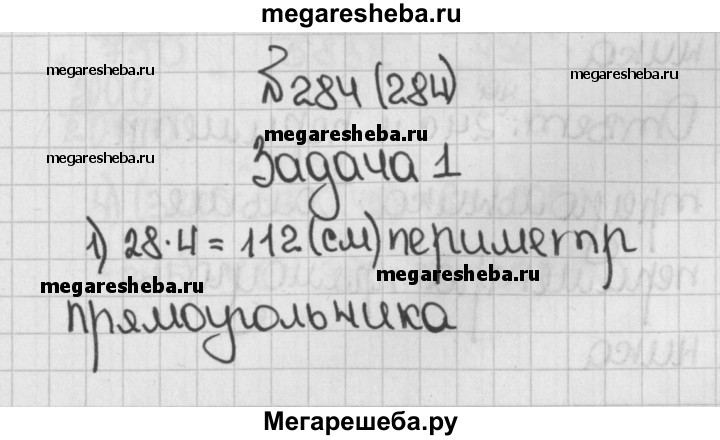 megaresheba.ru
megaresheba.ru
megaresheba.ru
№284 (284)
megaresheba.ru
megaresheba.ru
Задача 1
1) 28·4 = 112 (см) периметр
megaresheba.ru
megaresheba.ru
прямоугольника
Мегарешеба.ру